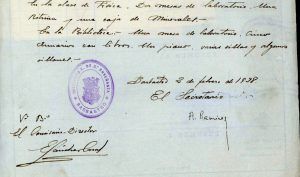 En la clase de Física. Dos mesas de laboratorio. Una
Retina y una caja de Minerales.
En la Biblioteca. Una mesa de laboratorio, Cinco
armarios con libros. Un piano, varias sillas y algunos
sillones.
Barbastro 2 de febrero de 1938.
El Secretario
Vº Bº
El Comisario-Director
A. Ramírez
BARBASTRO